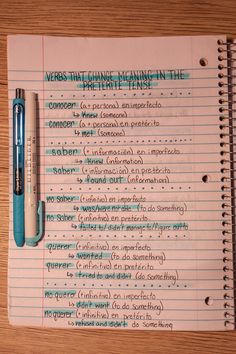 VERBS THAT CHANGE MEANING IN THE
PRETERITE TENSE
conocer (a + persona) en imperfecto
↳ Knew (someone)
conocer (a + persona) en pretérito
↳ met (someone)
saber (+ información) en imperfecto
↳ Knew (information)
saber (+ información) en pretérito
↳ found out (information)
no saber (+ infinitivo) en imperfecto
↳ was/were not able (to do something)
no saber (+ infinitivo) en pretérito
↳ failed to/ didn't manage to/figure out to
querer (+ infinitivo) en imperfecto
↳ wanted (to do something)
querer (+ infinitivo) en pretérito
↳ tried to and didn't (do something)
no querer (+ infinitivo) en imperfecto
↳ didn't want (to do something)
no querer (+ infinitivo) en pretérito
↳ refused and didn't (do something)